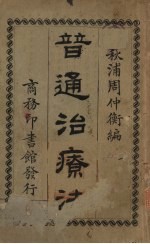 秋浦周仲衡編
普通治療法
商務印書館發行